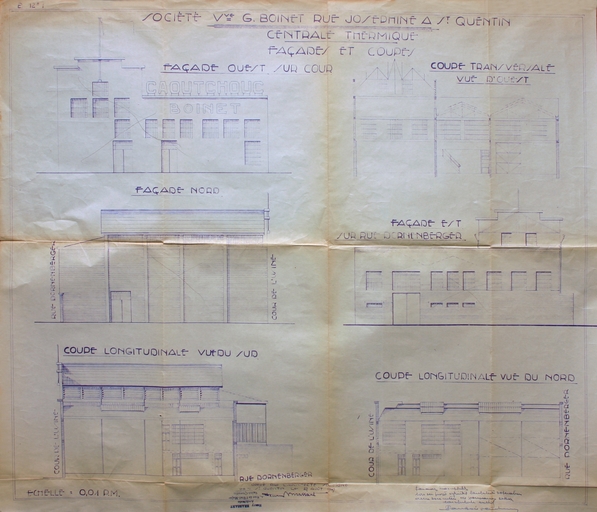 SOCIÉTÉ Vve G. BOINET RUE JOSEPHINE A St QUENTIN
CENTRALE THERMIQUE
FAÇADES ET COUPES
FAÇADE OUEST, SUR COUR
CAOUTCHOUC
BOINET
COUPE TRANSVERSALE
VUE D'OUEST
FAÇADE NORD
RUE DORNENBERGER
COUR DE L'USINE
FAÇADE EST
SUR RUE DORNENBERGER
COUPE LONGITUDINALE VUE DU SUD
COUR DE L'USINE
RUE DORNENBERGER
COUPE LONGITUDINALE VUE DU NORD
COUR DE L'USINE
RUE DORNENBERGER
ECHELLE : 0,01 P.M.